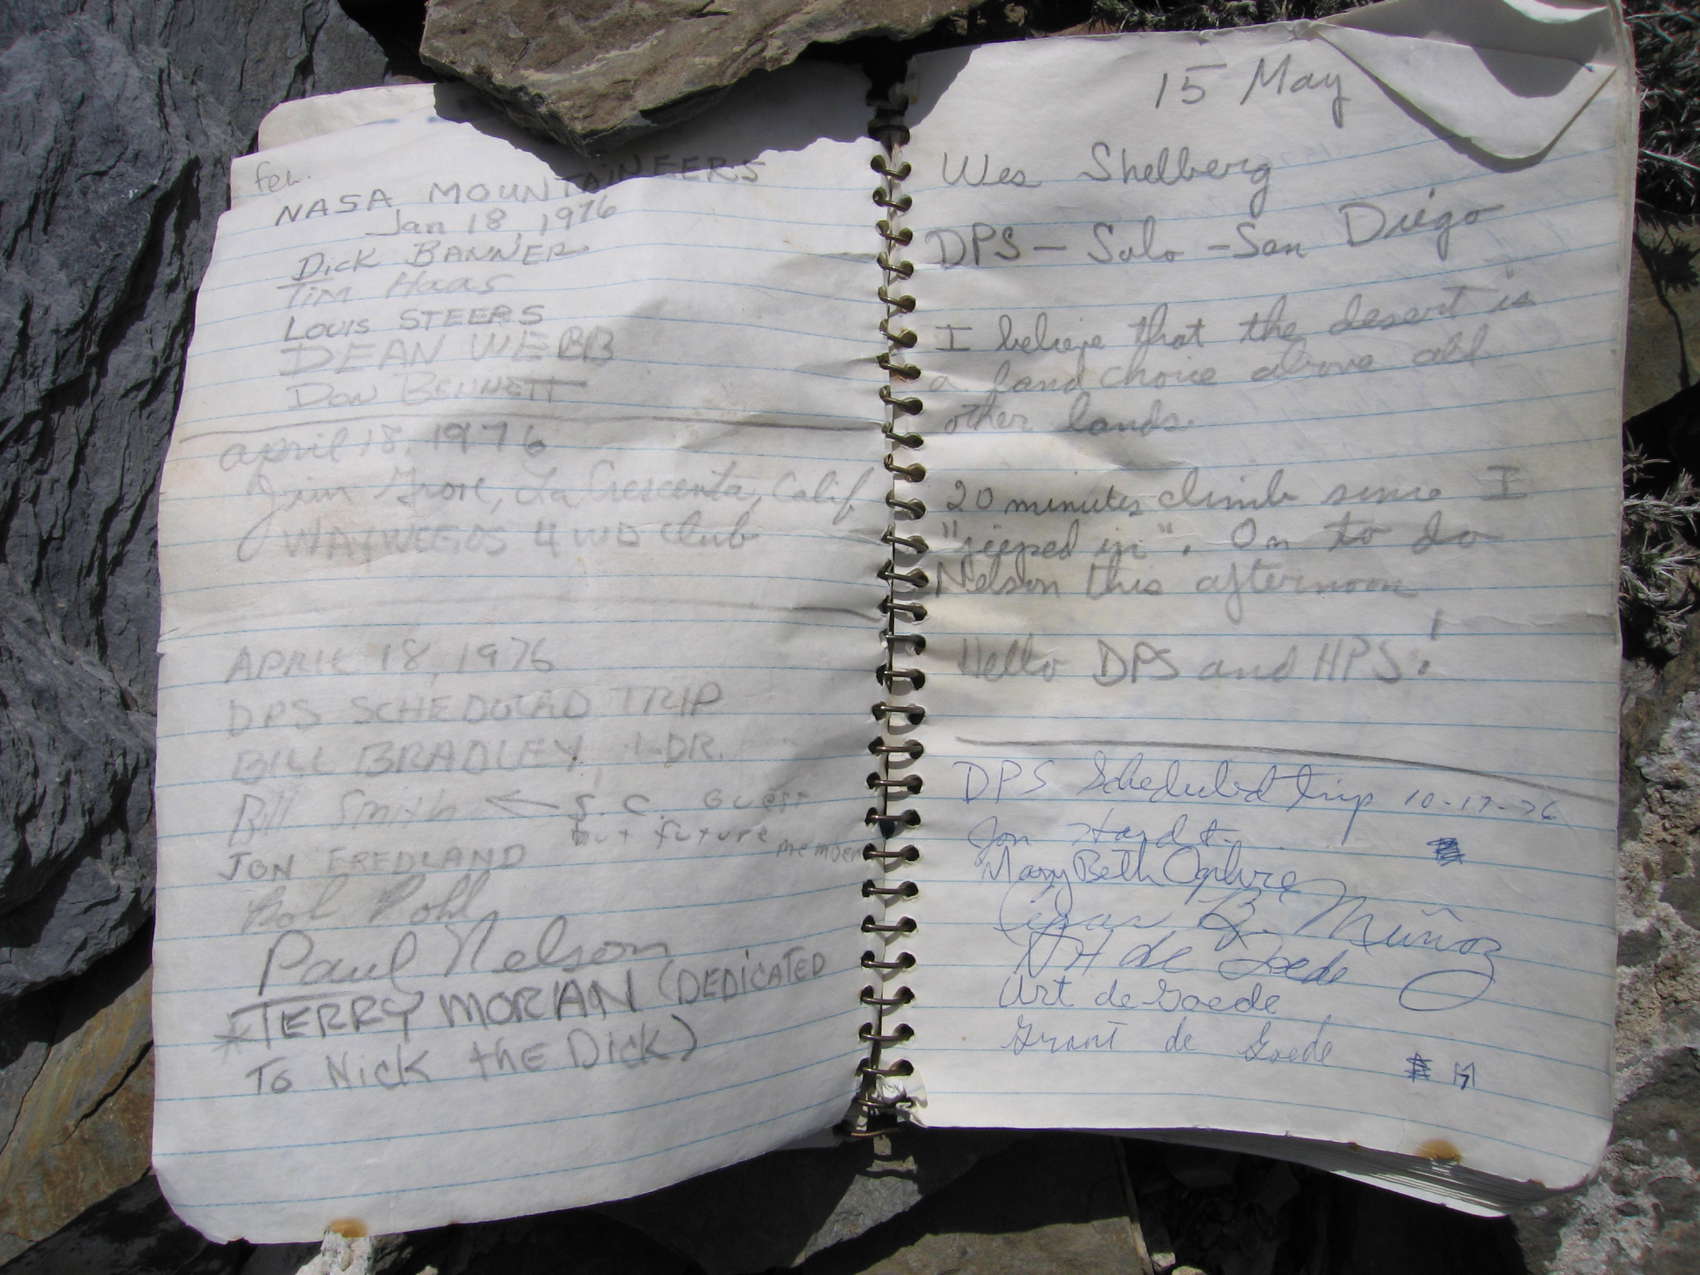 feb.
NASA MOUNTAINEERS
Jan 18, 1976
Dick BANNER
Tim Haas
Louis STEERS
DEAN WEBB
Don BENNETT
april 18, 1976
Jim Grose, La Crescenta, Calif.
4 WD Club
APRIL 18, 1976
DPS SCHEDULAD TRIP
BILL BRADLEY, LDR.
Bill Smith ← S.C. Guest
but future member
JON FREDLAND
Bob Pohl
Paul Nelson
*TERRY MORIAN (DEDICATED
To Nick the Dick)
15 May
Wes Shelberg
DPS - Solo - San Diego
I believe that the desert is
a fand choice above all
other lands.
20 minutes climb since I
"jeeped in". On to do
Nelson this afternoon
Hello DPS and HPS!
DPS Scheduled trip 10-17-76
Jon Hardt
Mary Beth Ogilvie
B. Muñoz
H de Goede
Art de Goede
Grant de Goede